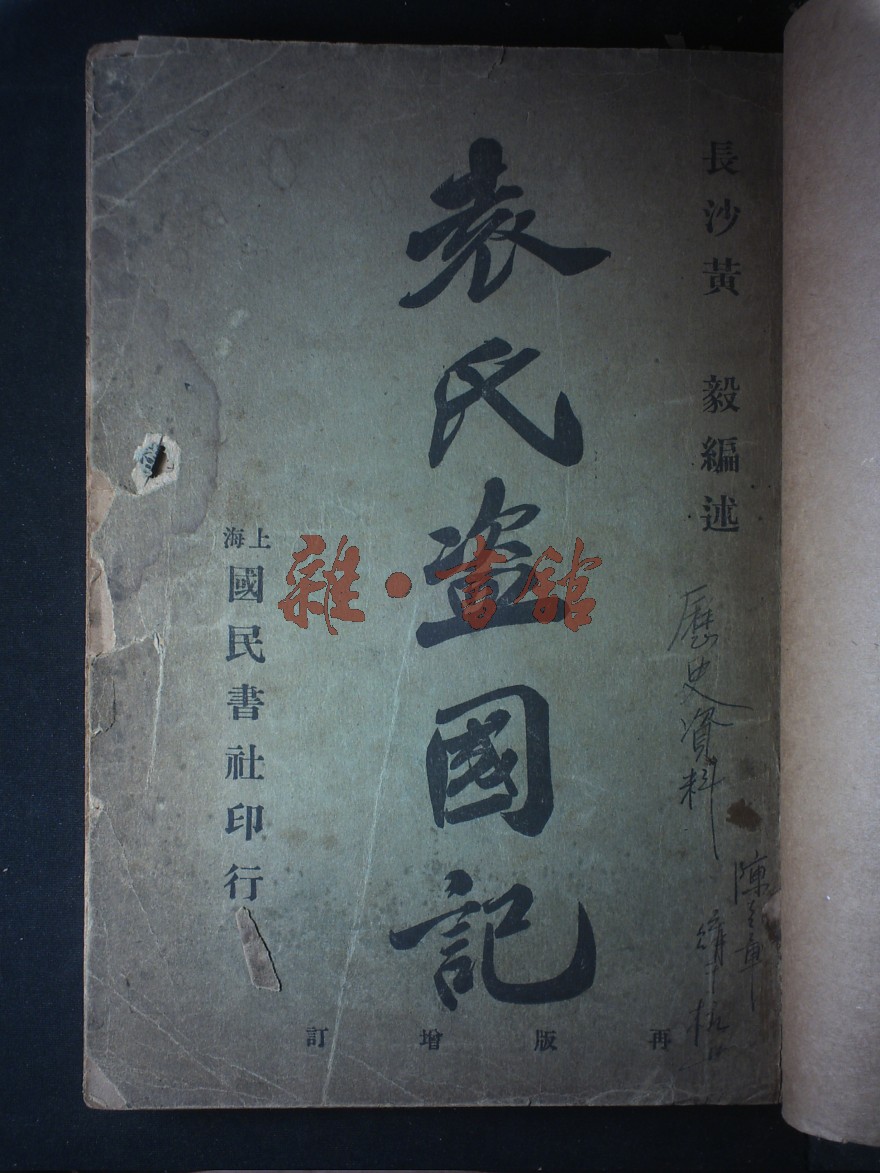 長沙黃毅編述
袁氏盜國記
上海
國民書社印行
再版增訂
歷史資料
雜·書館